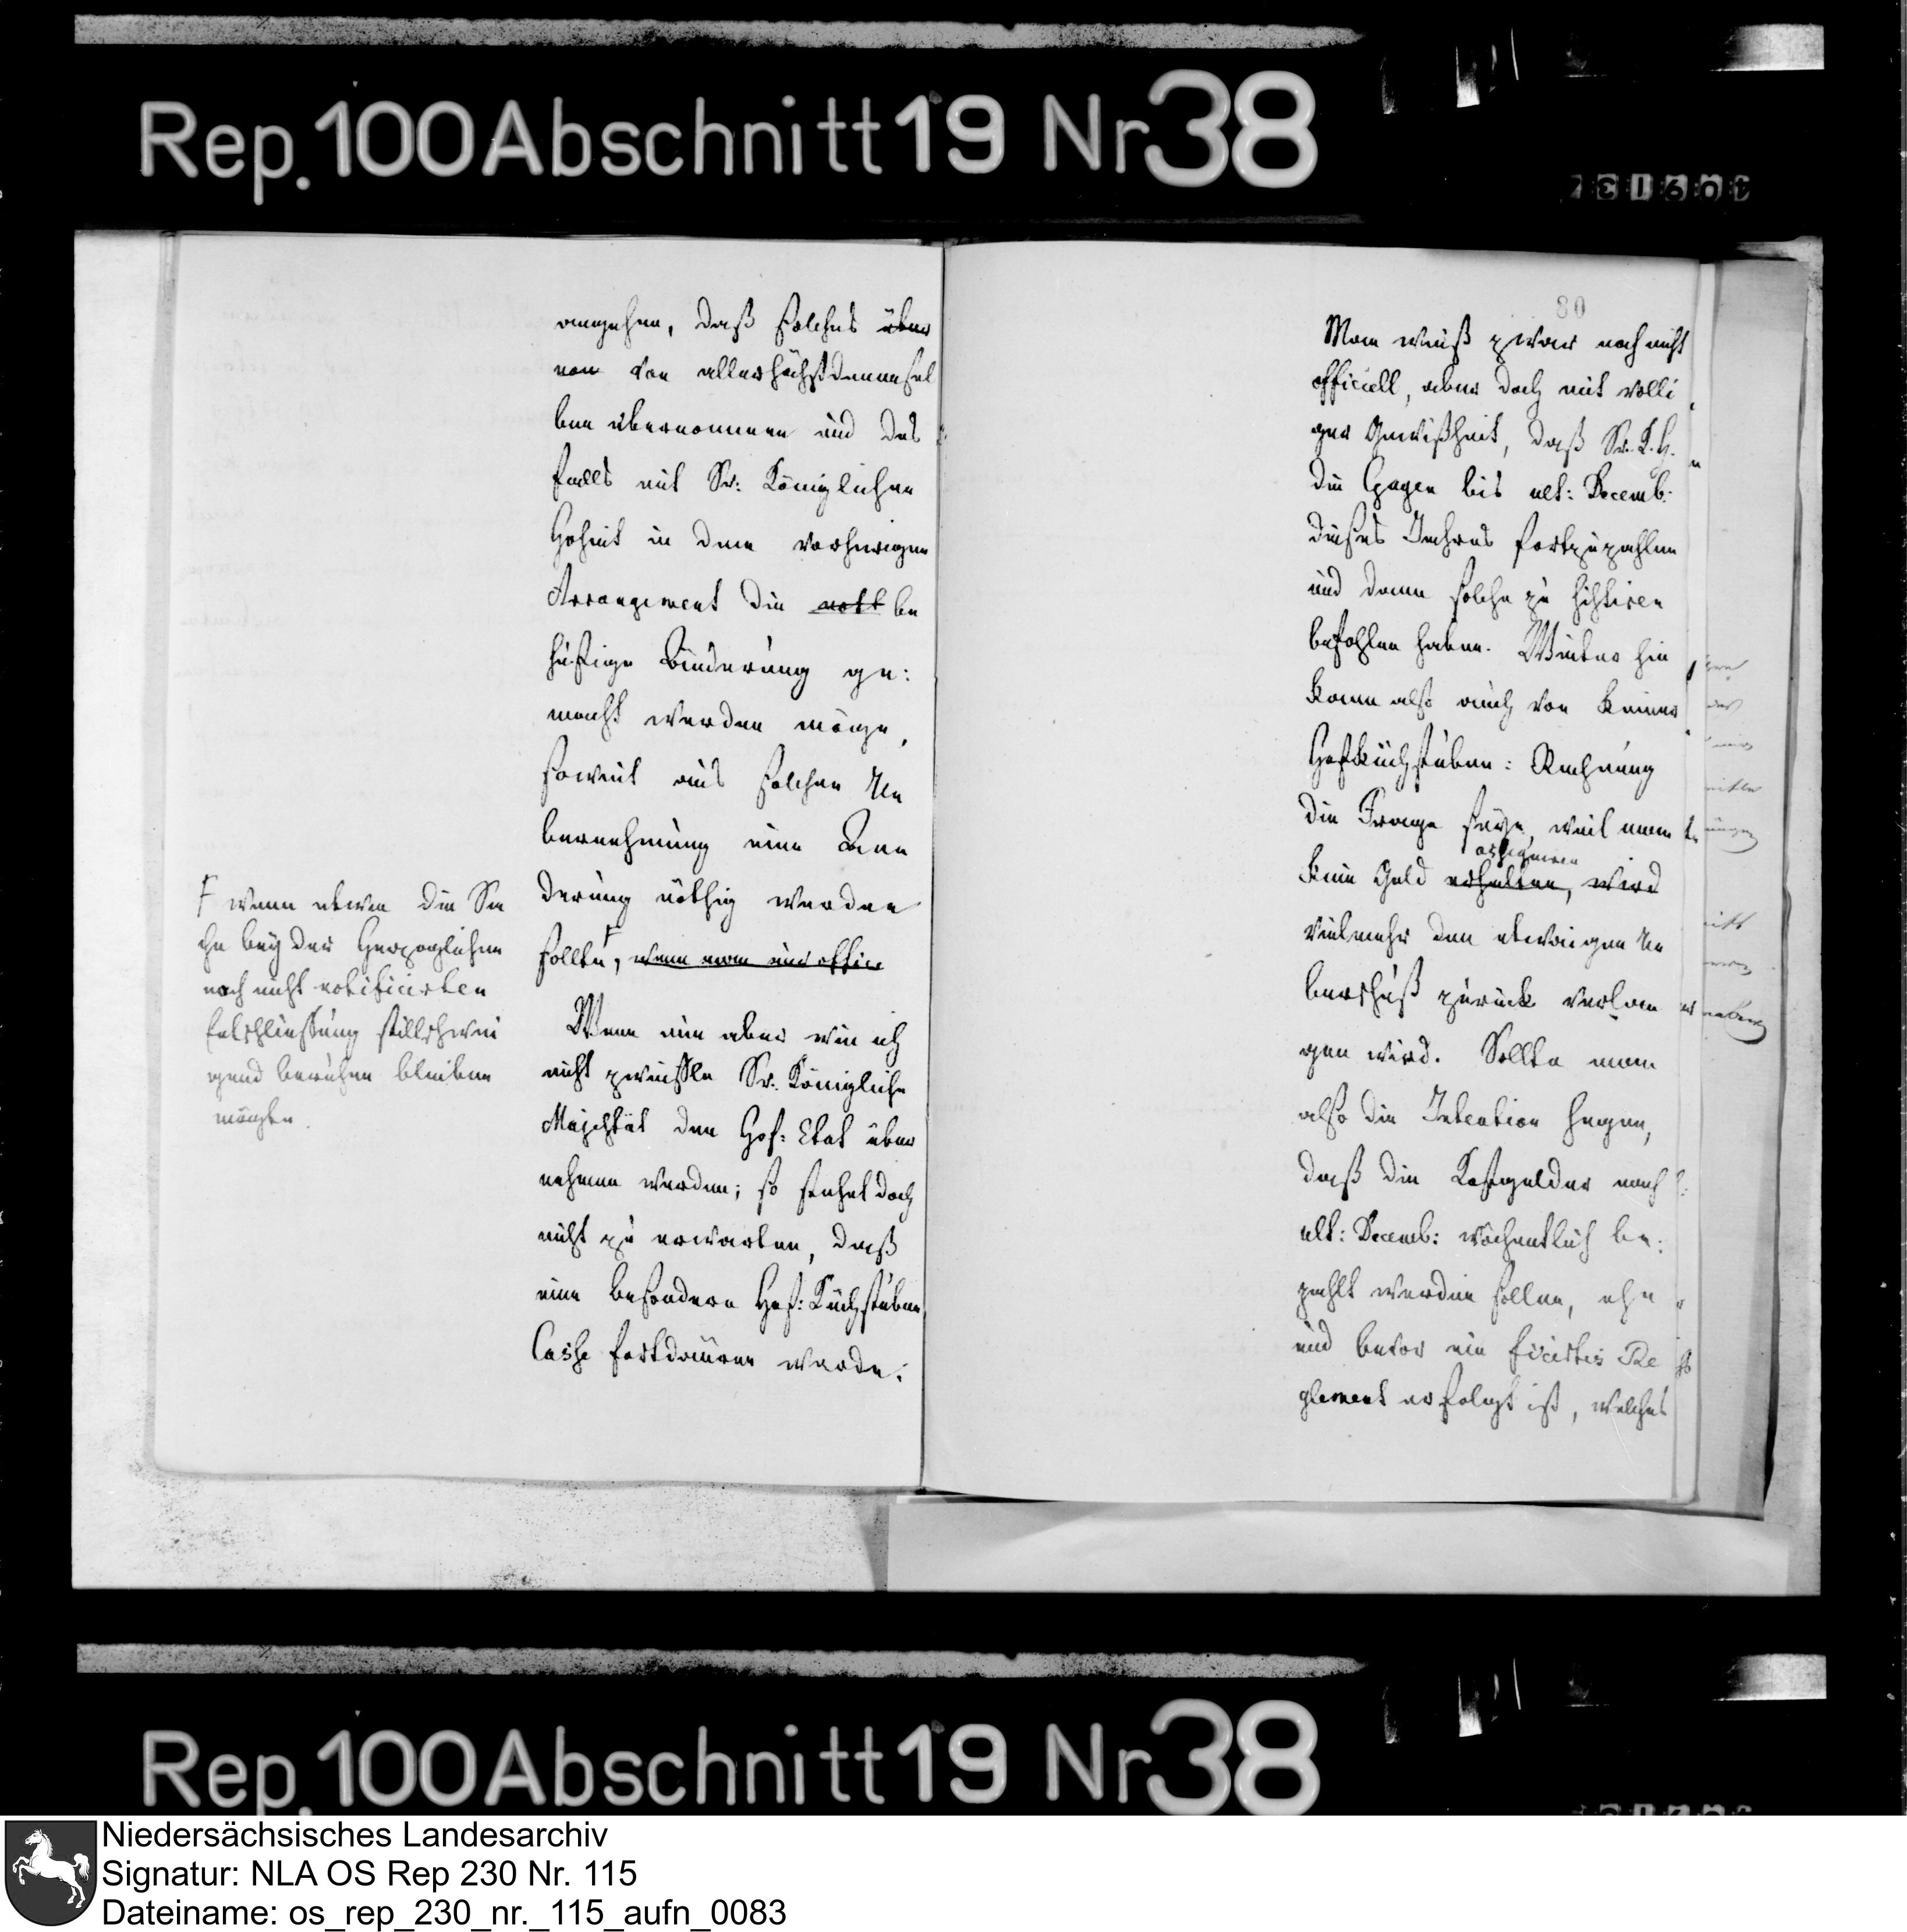 Rep. 100 Abschnitt 19 Nr 38
angehen, daß solches über
nom von allerhöchstdenensel
ben übernommen und des
falls mit Sr: Königlichen
Hoheit in dem vorherigen
Arrangement die noth be
hufige Änderung ge:
macht werden möge,
soweit aus solcher Ue
bernehmung eine Aen
derung nöthig werden
sollte,
Ŧ wenn etwa die Sa
che bey der Herzoglichen
noch nicht notificirten
Entschließung stillschwei
gend beruhen bleiben
möchte.
Wenn nun aber wie ich
nicht zweifle Sr. Königliche
Majestät den Hof: Etat über
nehmen werden; so stehet doch
nicht zu erwarten, daß
eine besondere Hof: Küchstuben
Casse fortdauren werde:
80
Man weiß zwar noch nicht
officiell, aber doch mit völli
ger Gewißheit, daß Sr. K. H.
die Gagen bis ult: Decemb:
dieses Jahres fortzuzahlen
und dann solche zu sistiren
befohlen haben. Weiter hin
kann also auch von keiner
Hofküchstuben: Rechnung
die Frage seyn, weil man
assigniren
kein Geld erhalten, wird
vielmehr den etwaigen Ue
berschuß zurück verlan
gen wird. Sollte man
also die Intention hegen,
daß die Kostgelder nach
ult: Decemb: wöchentlich be:
zahlt werden sollen, ehe
und bevor ein fixirtes Re
glement erfolgt ist, welches
Rep. 100 Abschnitt 19 Nr 38
Niedersächsisches Landesarchiv
Signatur: NLA OS Rep 230 Nr. 115
Dateiname: os_rep_230_nr._115_aufn_0083